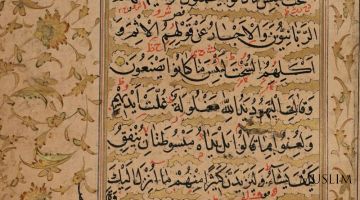 الرَّبَّانِيُّونَ وَالْأَحْبَارُ عَنْ قَوْلِهِمُ الْإِثْمَ وَ
أَكْلِهِمُ السُّحْتَ لَبِئْسَ مَا كَانُوا يَصْنَعُونَ
وَقَالَتِ الْيَهُودُ يَدُ اللَّهِ مَغْلُولَةٌ غُلَّتْ أَيْدِيهِمْ
وَلُعِنُوا بِمَا قَالُوا بَلْ يَدَاهُ مَبْسُوطَتَانِ يُنْفِقُ
كَيْفَ يَشَاءُ وَلَيَزِيدَنَّ كَثِيرًا مِنْهُمْ مَا أُنْزِلَ إِلَيْكَ
USLIM